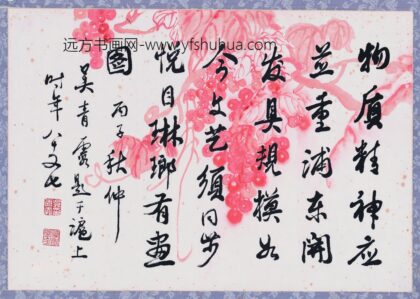 远方书画网-www.yfshuhua.com
物质精神应
并重浦东开
发具規模如
今文艺须同步
悦目琳瑯有画
圖 丙子秋仲
吴青霞题于滬上
时年八十又七